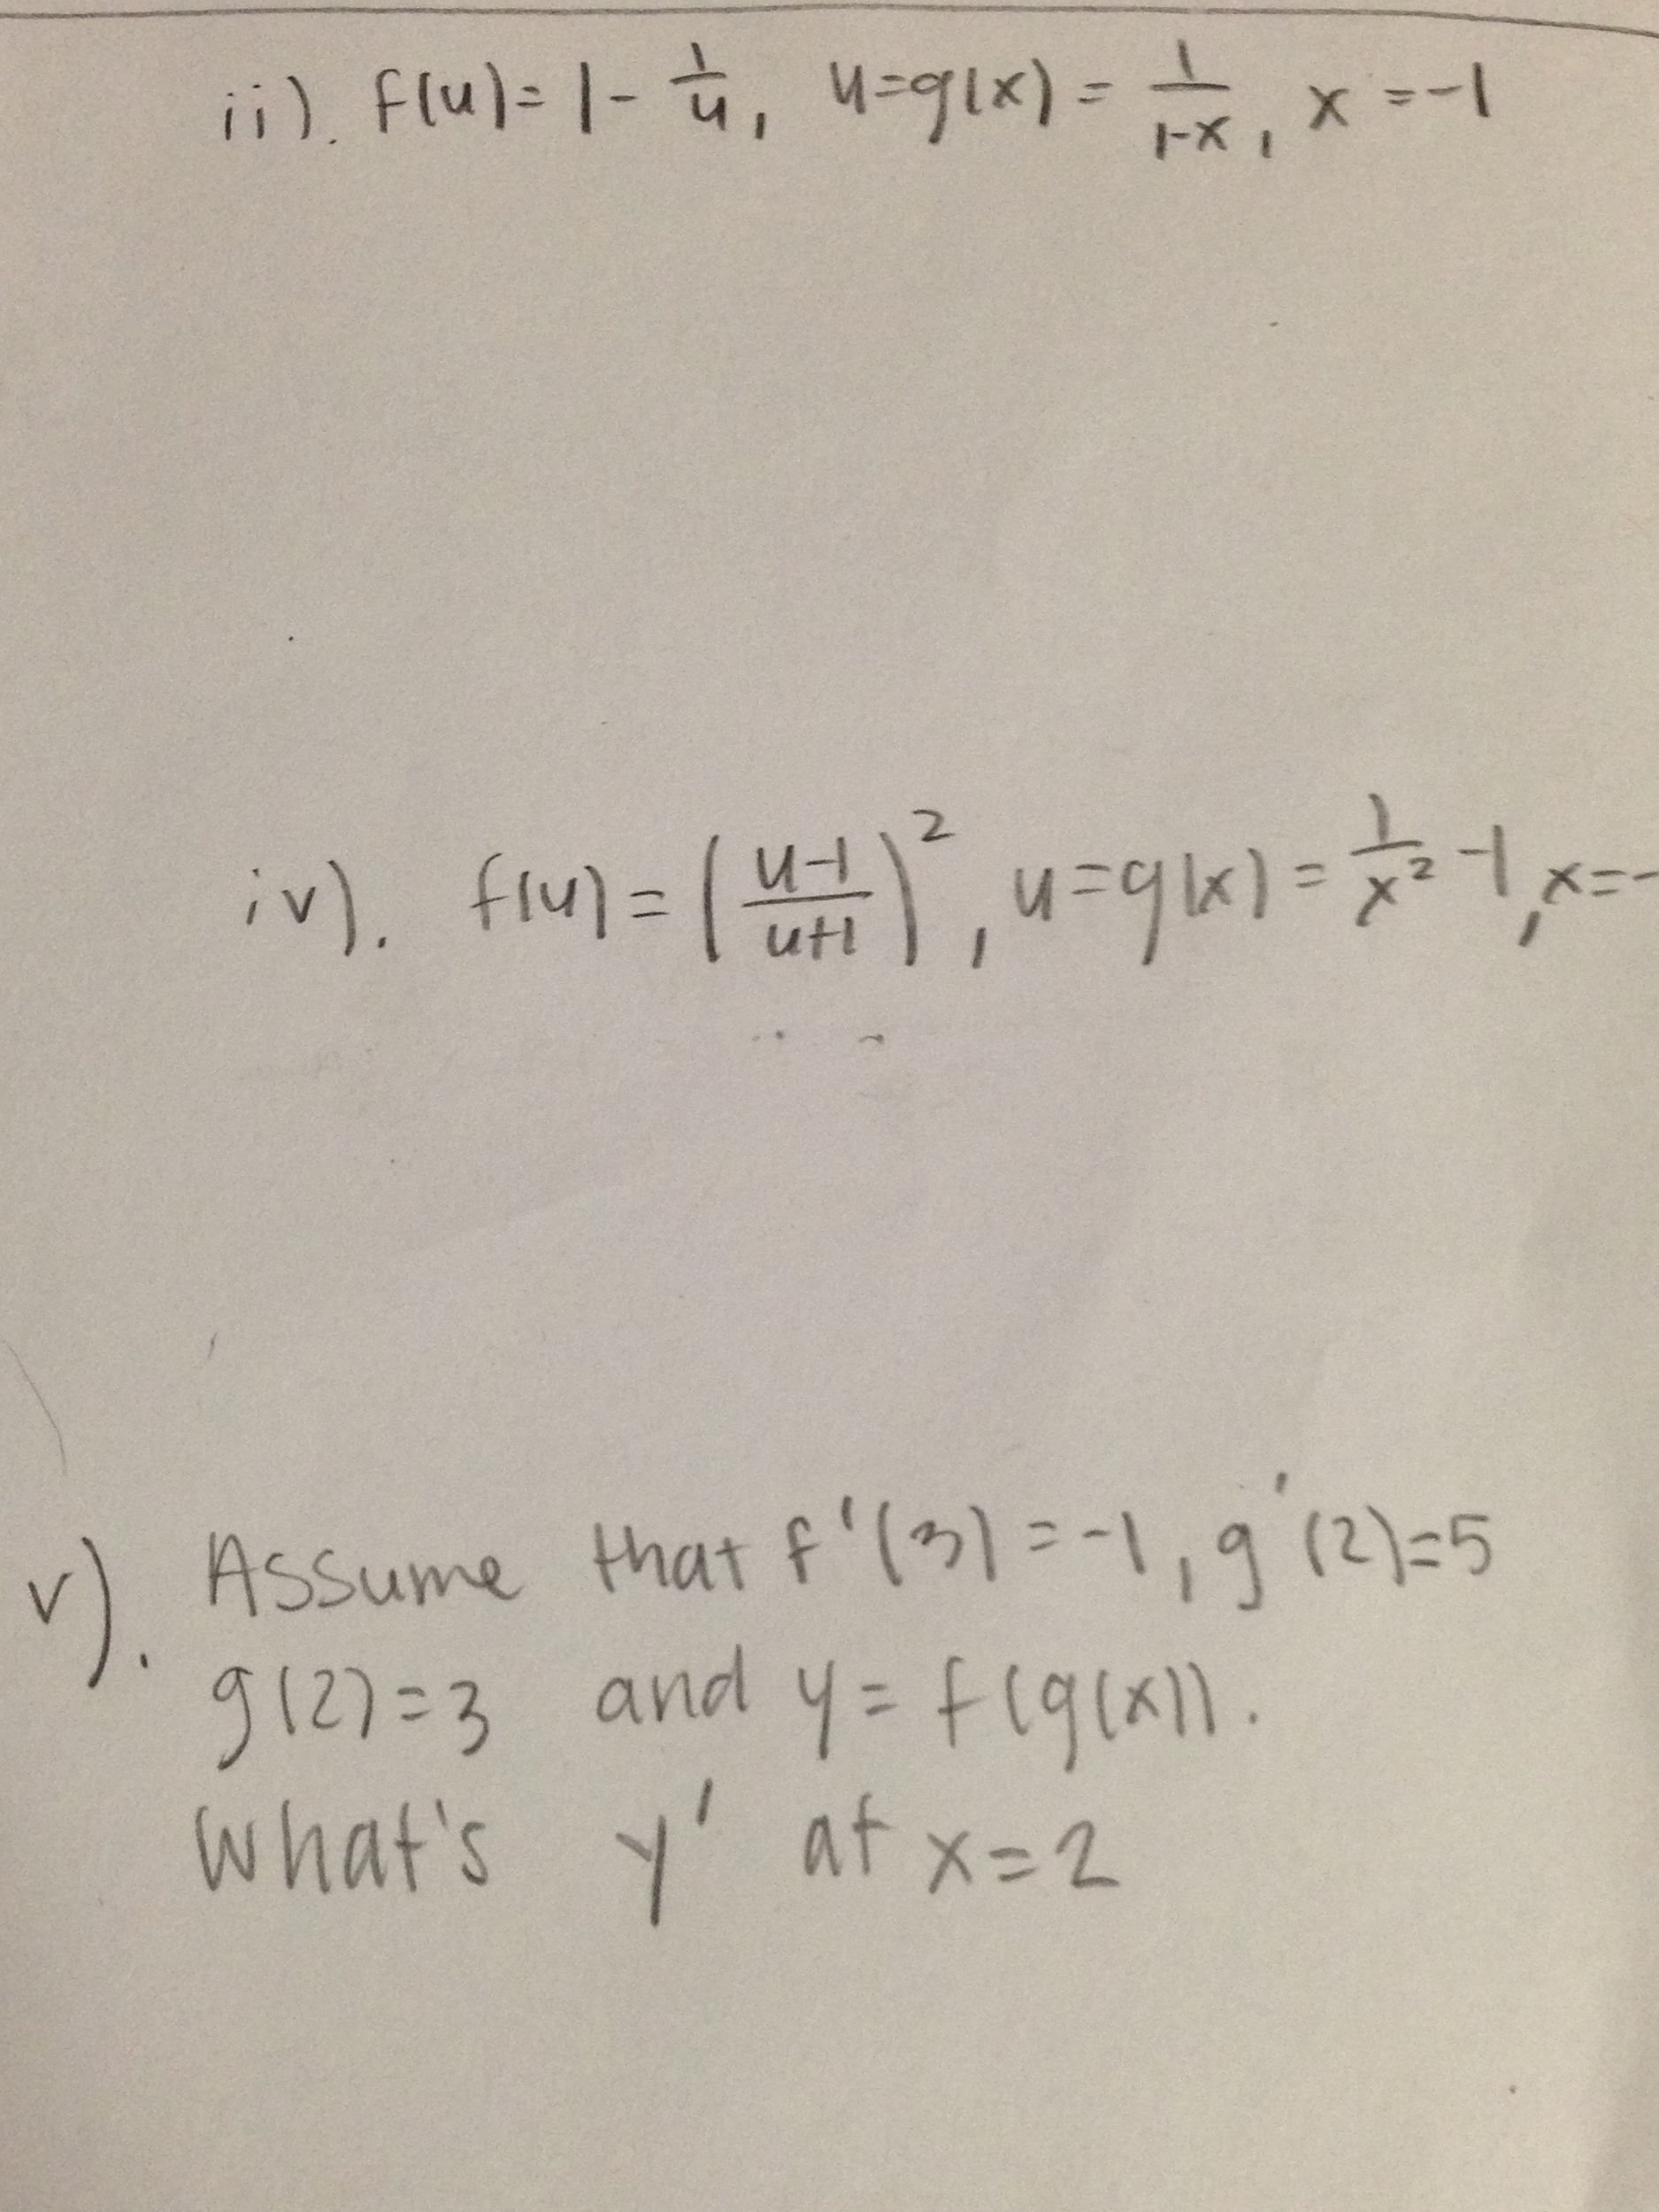 ii). f(u)= 1 - 1/u, u=g(x) = 1/(1-x), x = -1
iv). f(u) = ((u-1)/(u+1))², u=g(x) = 1/x² - 1, x=-
v). Assume that f'(3) = -1, g'(2)=5
g(2)=3 and y= f(g(x)).
What's y' at x=2